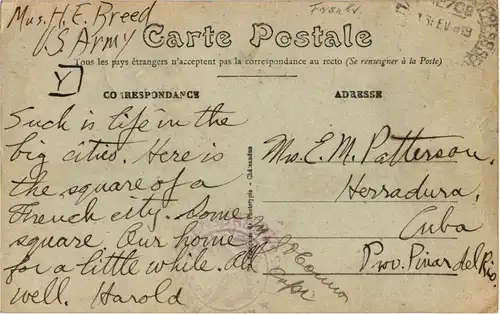 Mus. H. E. Breed
US Army
Y
Carte Postale
Tous les pays étrangers n'acceptent pas la correspondance au recto (Se renseigner à la Poste)
CORRESPONDANCE
ADRESSE
Such is life in the
big cities. Here is
the square of a
French city. Some
square. Our home
for a little while. All
well. Harold
Mrs. E. M. Patterson,
Herradura,
Cuba
Prov. Pinar del Rio.